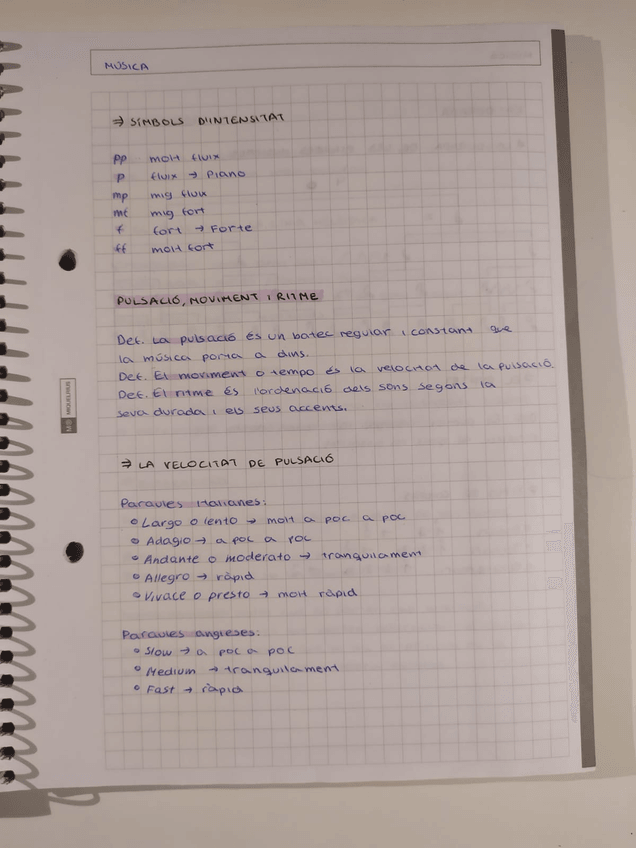 MÚSICA
⇒ SÍMBOLS D'INTENSITAT
pp molt fluix
p fluix → Piano
mp mig fluix
mf mig fort
f fort → Forte
ff molt fort
PULSACIÓ, MOVIMENT I RITME
Def. La pulsació és un batec regular i constant que
la música porta a dins.
Def. El moviment o tempo és la velocitat de la pulsació.
Def. El ritme és l'ordenació dels sons segons la
seva durada i els seus accents.
⇒ LA VELOCITAT DE PULSACIÓ
Paraules italianes:
Largo o lento → molt a poc a poc
Adagio → a poc a poc
Andante o moderato → tranquilament
Allegro → ràpid
Vivace o presto → molt ràpid
Paraules angleses:
Slow → a poc a poc
Medium → tranquilament
Fast → ràpid
MIQUELRIUS